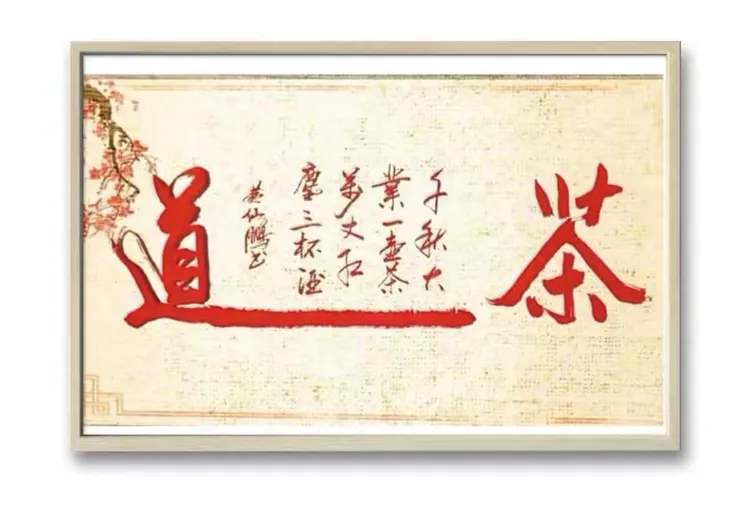 茶
道
千秋大
業一壺茶
萬丈紅
塵三杯酒
黄仙鵬书